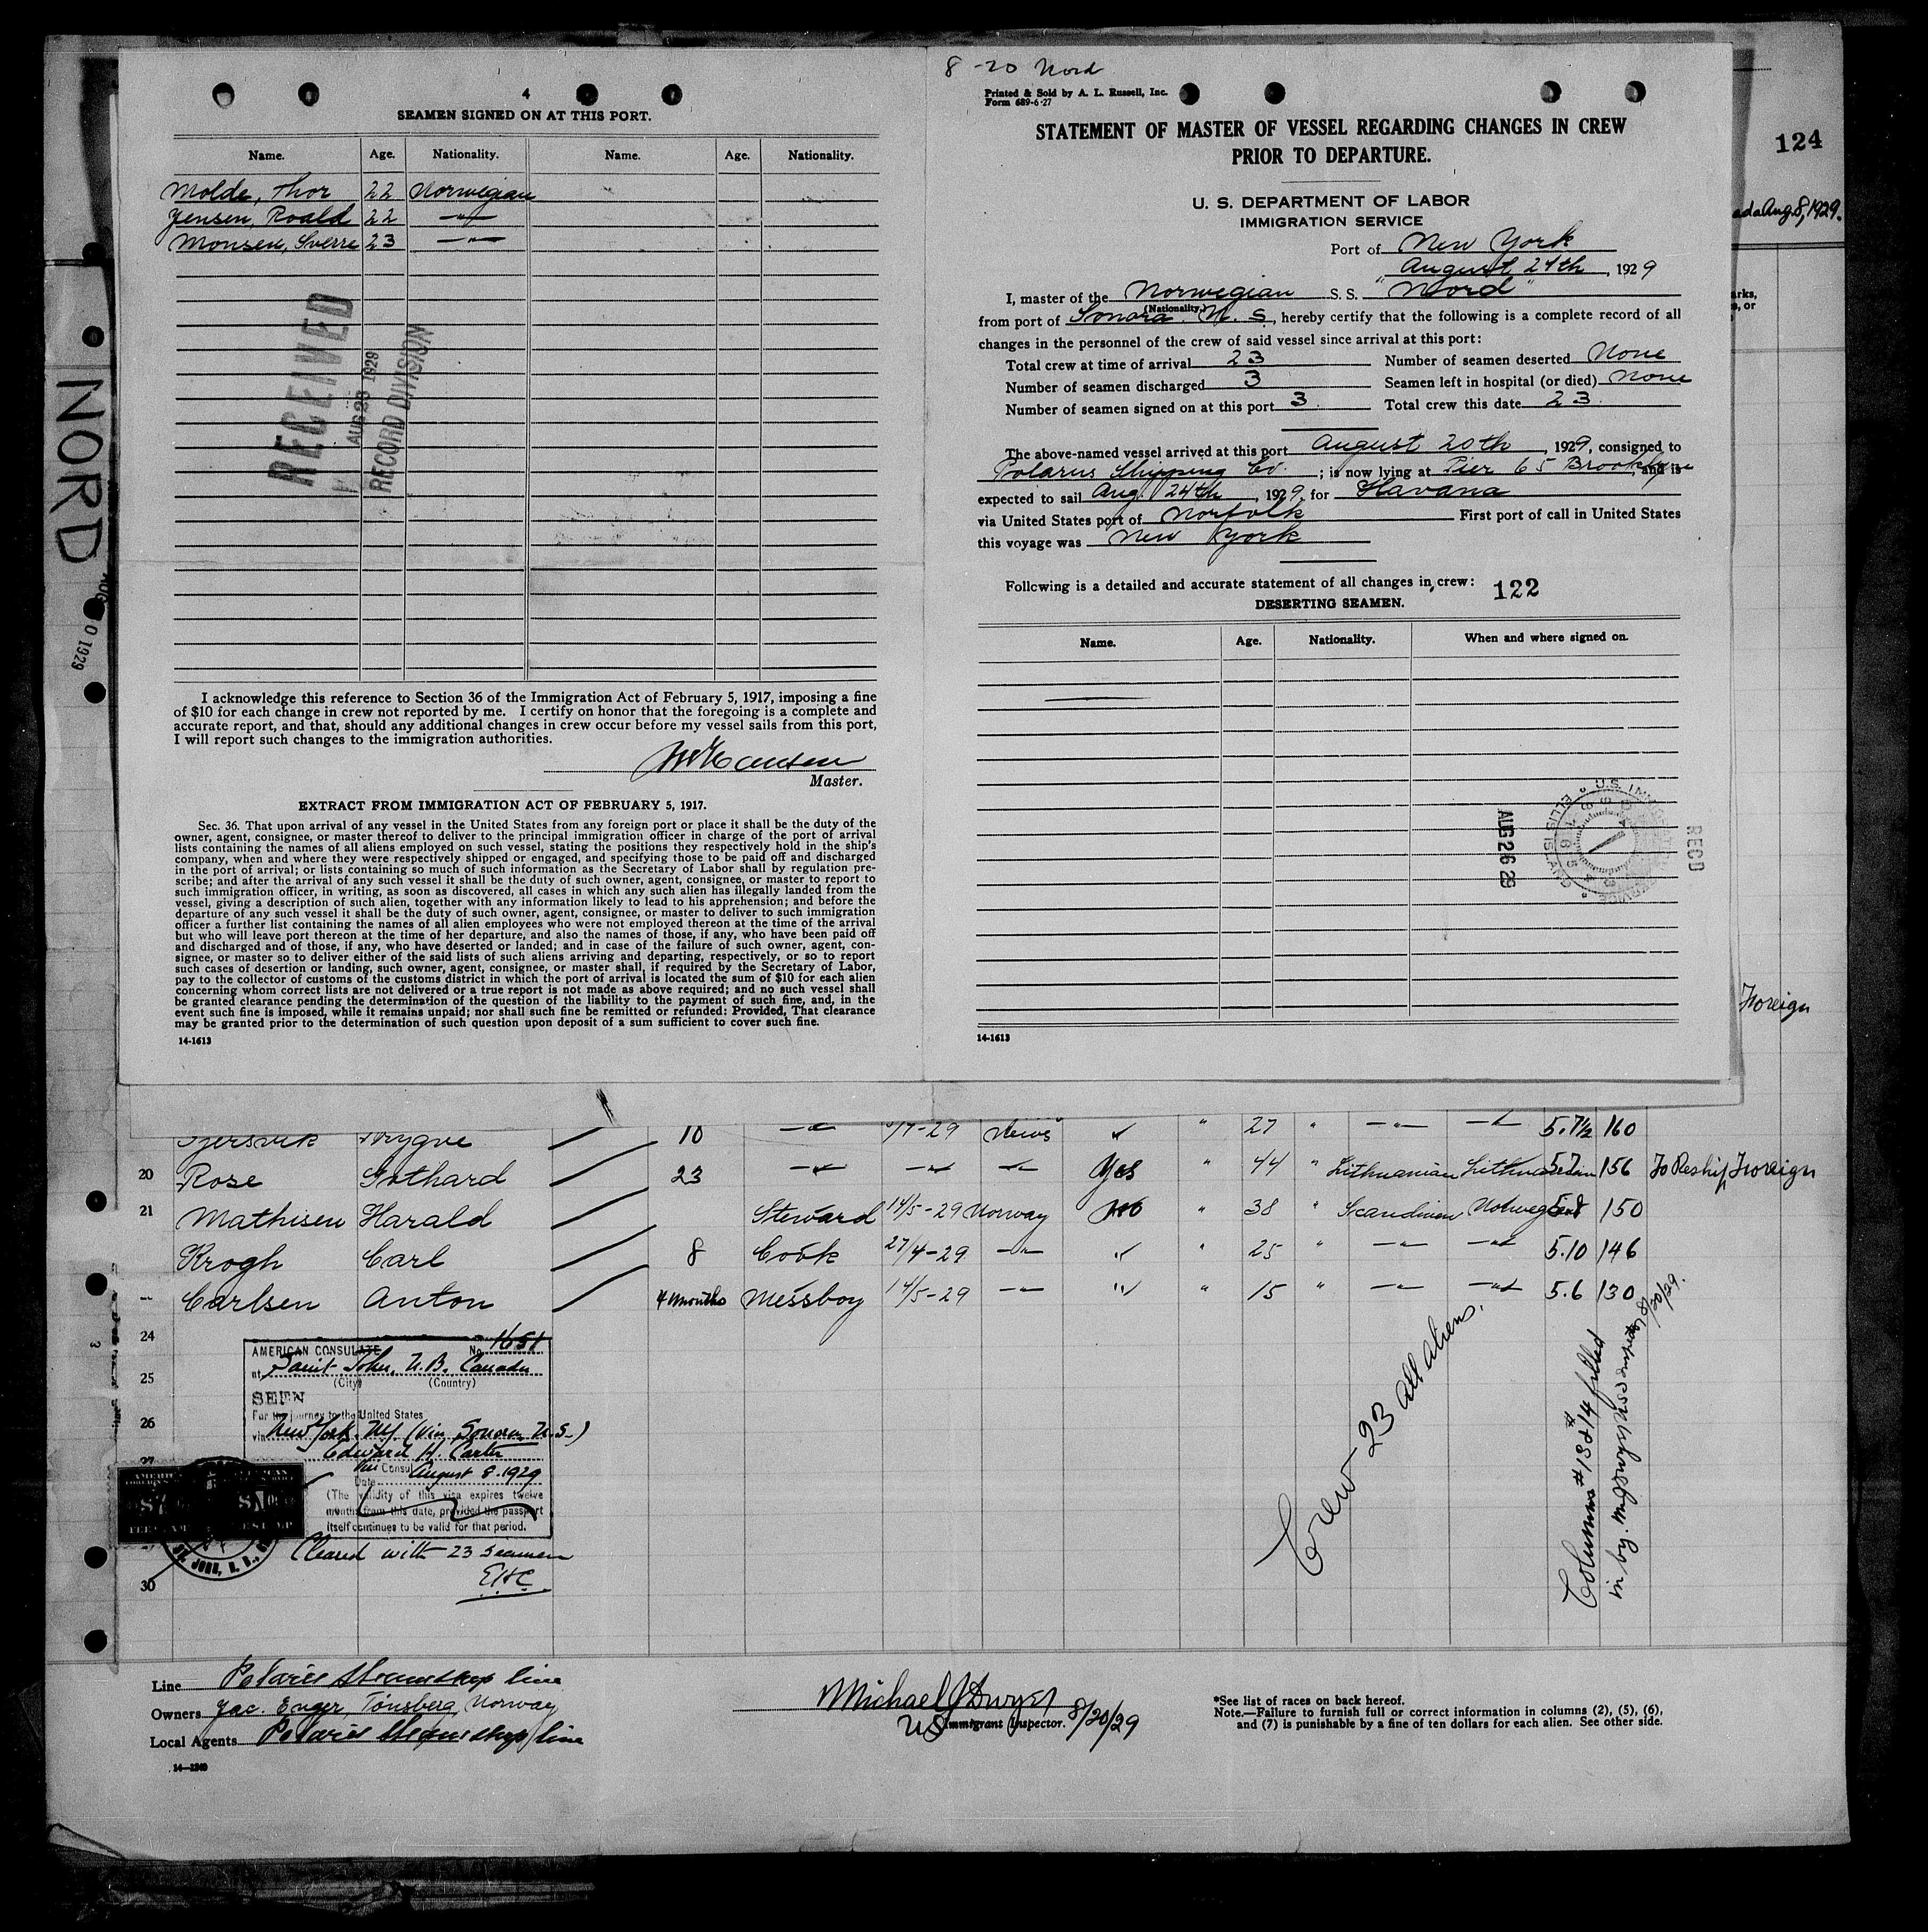 4
SEAMEN SIGNED ON AT THIS PORT.
Name. Age. Nationality. Name. Age. Nationality.
Molde, Thor 22 Norwegian
Jensen, Roald 22 —"—
Monsen, Sverre 23 —"—
RECEIVED
AUG 29 1929
RECORD DIVISION
I acknowledge this reference to Section 36 of the Immigration Act of February 5, 1917, imposing a fine
of $10 for each change in crew not reported by me. I certify on honor that the foregoing is a complete and
accurate report, and that, should any additional changes in crew occur before my vessel sails from this port,
I will report such changes to the immigration authorities.
Master.
EXTRACT FROM IMMIGRATION ACT OF FEBRUARY 5, 1917.
Sec. 36. That upon arrival of any vessel in the United States from any foreign port or place it shall be the duty of the
owner, agent, consignee, or master thereof to deliver to the principal immigration officer in charge of the port of arrival
lists containing the names of all aliens employed on such vessel, stating the positions they respectively hold in the ship's
company, when and where they were respectively shipped or engaged, and specifying those to be paid off and discharged
in the port of arrival; or lists containing so much of such information as the Secretary of Labor shall by regulation pre-
scribe; and after the arrival of any such vessel it shall be the duty of such owner, agent, consignee, or master to report to
such immigration officer, in writing, as soon as discovered, all cases in which any such alien has illegally landed from the
vessel, giving a description of such alien, together with any information likely to lead to his apprehension; and before the
departure of any such vessel it shall be the duty of such owner, agent, consignee, or master to deliver to such immigration
officer a further list containing the names of all alien employees who were not employed thereon at the time of the arrival
but who will leave port thereon at the time of her departure, and also the names of those, if any, who have been paid off
and discharged and of those, if any, who have deserted or landed; and in case of the failure of such owner, agent, con-
signee, or master so to deliver either of the said lists of such aliens arriving and departing, respectively, or so to report
such cases of desertion or landing, such owner, agent, consignee, or master shall, if required by the Secretary of Labor,
pay to the collector of customs of the customs district in which the port of arrival is located the sum of $10 for each alien
concerning whom correct lists are not delivered or a true report is not made as above required; and no such vessel shall
be granted clearance pending the determination of the question of the liability to the payment of such fine, and, in the
event such fine is imposed, while it remains unpaid; nor shall such fine be remitted or refunded: Provided, That clearance
may be granted prior to the determination of such question upon deposit of a sum sufficient to cover such fine.
14-1613
8-20 Nord
Printed & Sold by A. L. Russell, Inc.
Form 689-6-27
STATEMENT OF MASTER OF VESSEL REGARDING CHANGES IN CREW
PRIOR TO DEPARTURE.
U. S. DEPARTMENT OF LABOR
IMMIGRATION SERVICE
Port of New York
August 24th, 1929
I, master of the Norwegian S. S. "Nord"
(Nationality.)
from port of Sonora N. S., hereby certify that the following is a complete record of all
changes in the personnel of the crew of said vessel since arrival at this port:
Total crew at time of arrival 23 Number of seamen deserted None
Number of seamen discharged 3 Seamen left in hospital (or died) None
Number of seamen signed on at this port 3 Total crew this date 23
The above-named vessel arrived at this port August 20th, 1929, consigned to
Polarus Shipping Co. ; is now lying at Pier 65 Brooklyn, and is
expected to sail Aug. 24th, 1929, for Havana
via United States port of Norfolk First port of call in United States
this voyage was New York
Following is a detailed and accurate statement of all changes in crew: 122
DESERTING SEAMEN.
Name. Age. Nationality. When and where signed on.
AUG 26 29
U.S. IMMIGRATION SERVICE ELLIS ISLAND
RECD
14-1613
124
ada Aug. 8, 1929.
Foreign
NORD
0 1929
Trygve 10 —"— 29 News " 27 " —"— —"— 5.7½ 160
20 Rose Gothard 23 —"— —"— —"— Yes " 44 " Lithuanian 5.7 156 To Reship Foreign
21 Mathisen Harald Steward 14/5-29 Norway " 38 " 5.8 150
Krogh Carl 8 Cook 27/4-29 —"— " " 25 " —"— —"— 5.10 146
Carlsen Anton 4 months Messboy 14/5-29 —"— " " 15 " —"— —"— 5.6 130
24
25
26
27
30
AMERICAN CONSULATE No. 1651
at Saint John, N. B. Canada
(City) (Country)
SEEN
For the journey to the United States
via New York, NY (via Sonora N.S.)
Edward H. Carter
Vice Consul
Date August 8. 1929
(The validity of this visa expires twelve
months from this date, provided the passport
itself continues to be valid for that period.
Cleared with 23 seamen
EHC
Crew - 23 all aliens.
Columns #13 & #14 filled
in by 8/20/29.
Line Polaris Steamship line
Owners Jac. Enger, Tönsberg, Norway
Local Agents Polaris Steamship line
14—1240
Michael J Dwyer
US Immigrant Inspector. 8/20/29
*See list of races on back hereof.
Note.—Failure to furnish full or correct information in columns (2), (5), (6),
and (7) is punishable by a fine of ten dollars for each alien. See other side.